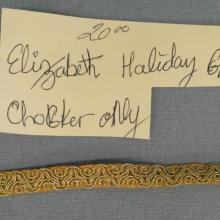 20⁰⁰
Elizabeth Haliday
Choker only